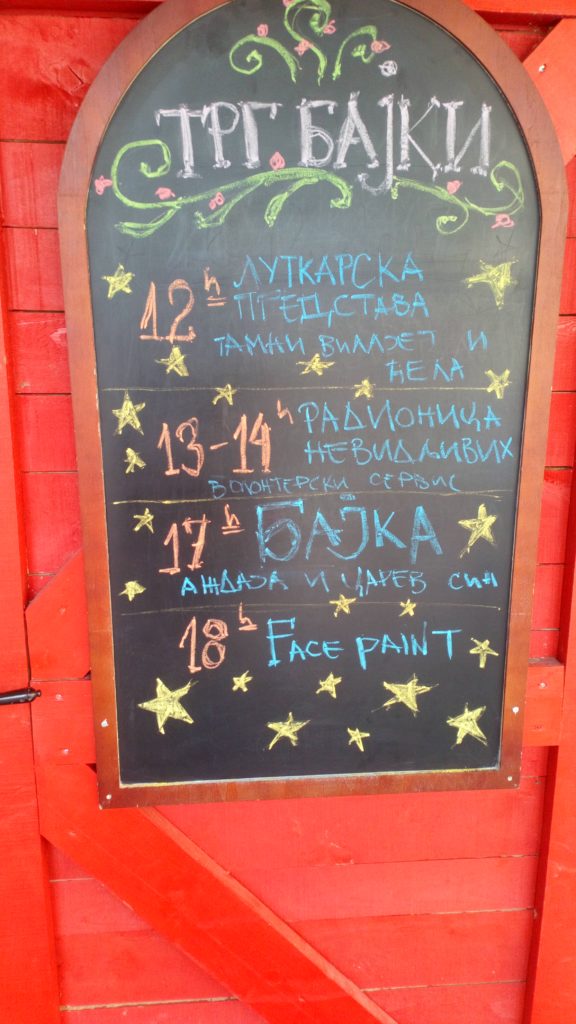 ТРГ БАЈКИ
12h ЛУТКАРСКА
ПРЕДСТАВА
ТАМНИ ВИЛАЈЕТ И
ЋЕЛА
13-14h РАДИОНИЦА
НЕВИДЉИВИХ
ВОЛОНТЕРСКИ СЕРВИС
17h БАЈКА
АЖДАЈА И ЦАРЕВ СИН
18h FACE PAINT